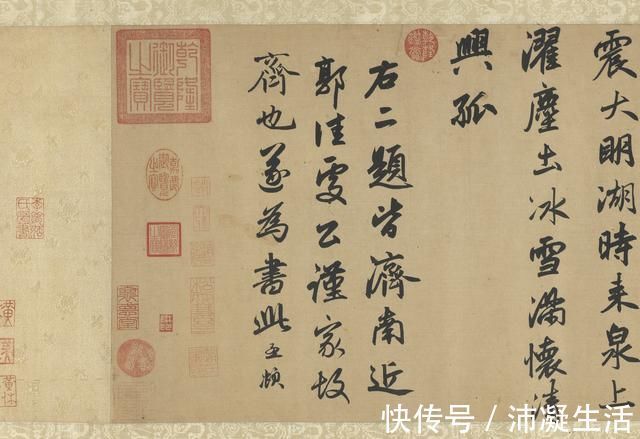 震大明湖時来泉上
濯塵土冰雪滿懷清
興孤
右二題皆濟南近
郭佳處公謹家故
齊也遂為書此孟頫
乾隆
御覽
之寶
快传号 / 沛凝生活